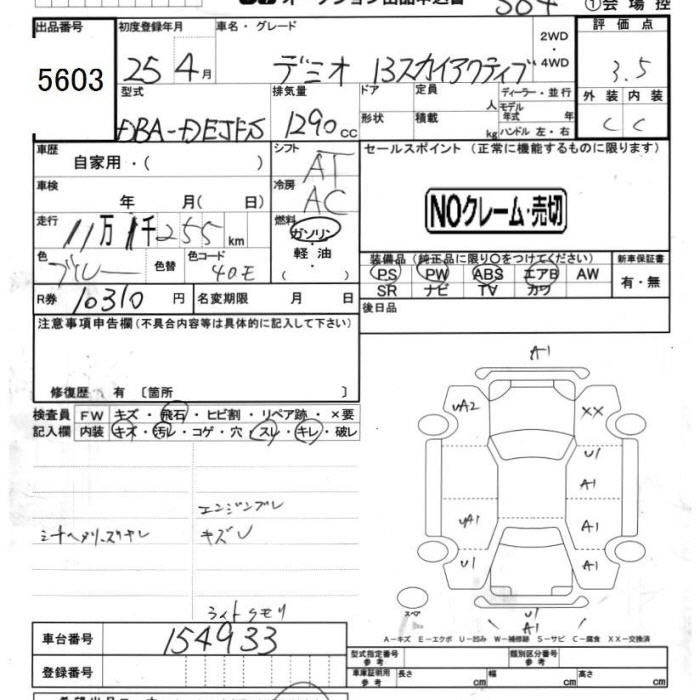 504 ①会場控
出品番号 5603
初度登録年月 25 4月
車名・グレード デミオ 13スカイアクティブ 2WD・4WD
評価点 3.5
外装 内装
C C
型式 DBA-DEJFS
排気量 1290cc
ドア 形状
定員 人
積載 kg
ディーラー・並行
モデル年式 年
ハンドル 左・右
車歴 自家用・( )
シフト AT
セールスポイント (正常に機能するものに限ります)
車検 年 月( 日)
冷房 AC
NOクレーム・売切
走行 11万1千255km
燃料 ガソリン・軽油・( )
色 ブルー 色替 色コード 40E
装備品 (純正品に限り○をつけてください) 新車保証書
PS PW ABS エアB AW 有・無
SR ナビ TV カワ
R券 10310円 名変期限 月 日
後日品
注意事項申告欄(不具合内容等は具体的に記入して下さい)
修復歴 有〔箇所 〕
検査員 FW キズ・飛石・ヒビ割・リペア跡・×要
記入欄 内装 キズ・汚レ・コゲ・穴・スレ・キレ・破レ
エンジンブレ
キズU
ライトクモリ
A1
UA2 XX
U1
A1
UA1 A1
U1 A1
スペア
U1
A1
A-キズ E-エクボ U-凹み W-補修跡 S-サビ C-腐食 XX-交換済
車台番号 154933
型式指定番号 参考 類別区分番号 参考
登録番号
車庫証明用 参考 長さ cm 幅 cm 高さ cm